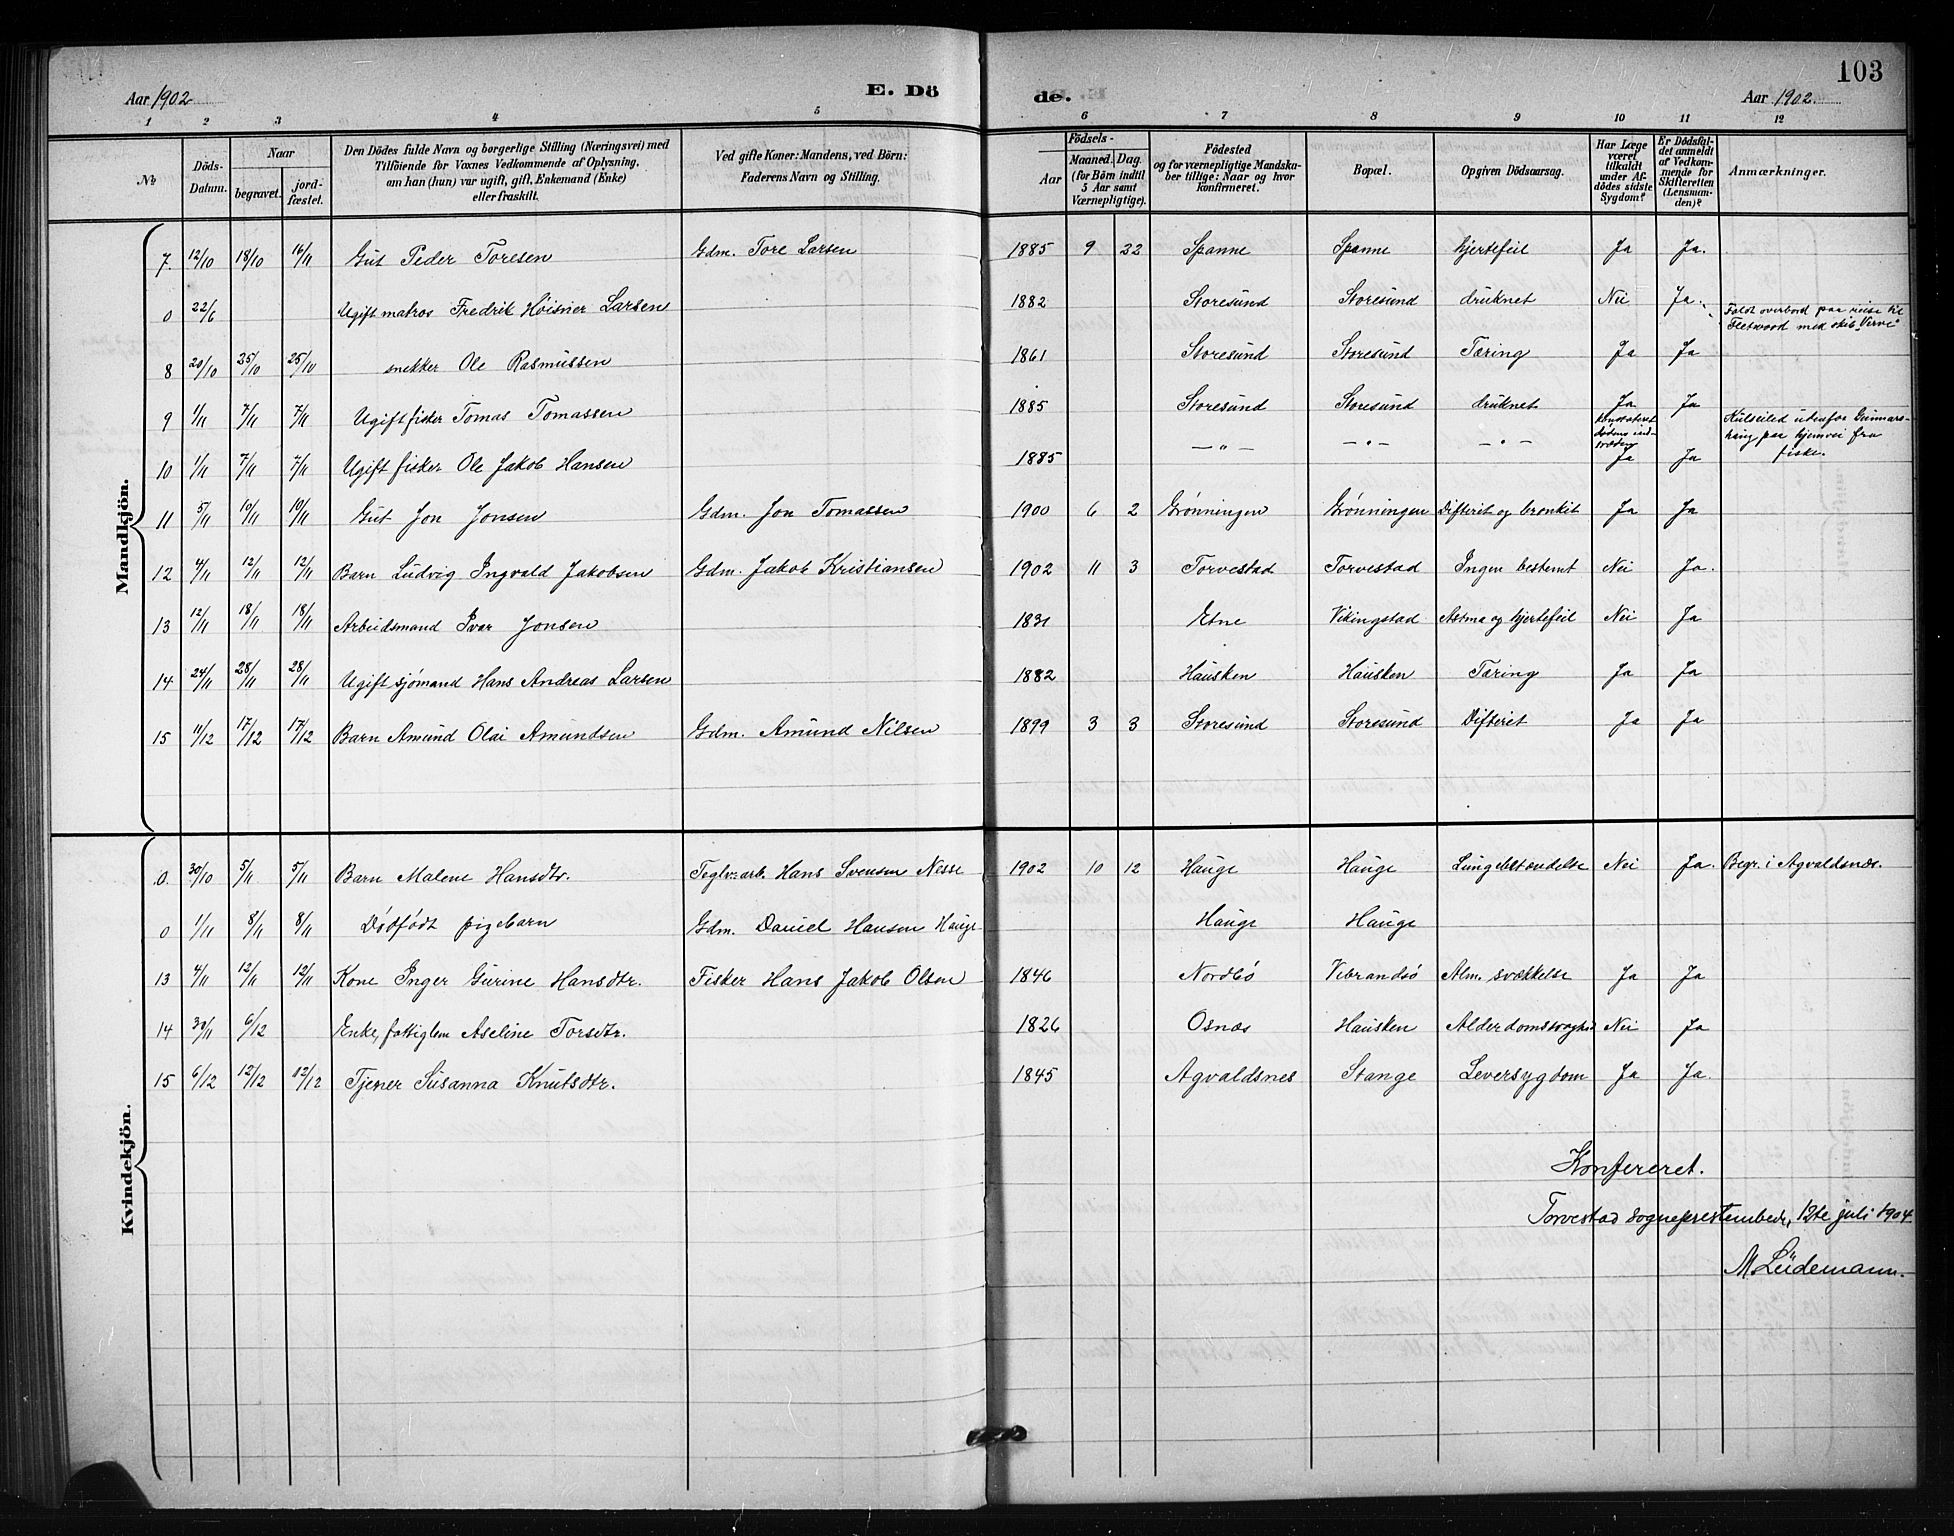 103
Aar 1902 E. Dö de. Aar 1902.
1 2 3 4 5 6 7 8 9 10 11 12
№
Döds-Datum.
Naar
begravet.
jord-fæstet.
Den Dödes fulde Navn og borgerlige Stilling (Næringsvei) med
Tilföiende for Voxnes Vedkommende af Oplysning,
om han (hun) var ugift, gift, Enkemand (Enke)
eller fraskilt.
Ved gifte Koner: Mandens, ved Börn:
Faderens Navn og Stilling.
Födsels-
Aar
Maaned. Dag.
(for Börn indtil
5 Aar samt
Værnepligtige).
Födested
og for værnepligtige Mandska-
ber tillige: Naar og hvor
konfirmeret.
Bopæl.
Opgiven Dödsaarsag.
Har Læge
været
tilkaldt
under Af-
dödes sidste
Sygdom?
Er Dödsfal-
det anmeldt
af Vedkom-
mende for
Skifteretten
(Lensman-
den)?
Anmærkninger.
Mandkjön.
7. 12/10 18/10 16/11 Gut Peder Toresen Gdm. Tore Larsen 1885 9 22 Spanne Spanne hjertefeil Ja Ja.
0 22/6 Ugift matros Fredrik Høisner Larsen 1882 Storesund Storesund druknet Nei Ja. Faldt overbord paa reise til
Fleetwood med skib "Verve"
8 20/10 25/10 25/10 snekker Ole Rasmussen 1861 Storesund Storesund Tæring Ja Ja
9 1/11 7/11 7/11 Ugift fisker Tomas Tomassen 1885 Storesund Storesund druknet Ja Ja Kulseiled udenfor Gunnars-
konstateret
dødens ind-
træden
haug paa hjemvei fra
fiske.
10 1/11 7/11 7/11 Ugift fisker Ole Jakob Hansen 1885 — " — — " — — " — Ja Ja
11 5/11 10/11 10/11 Gut Jon Jonsen Gdm. Jon Tomassen 1900 6 2 Grønningen Grønningen Difterit og bronkit Ja Ja
12 4/11 12/11 12/11 Barn Ludvig Ingvald Jakobsen Gdm. Jakob Kristiansen 1902 11 3 Torvestad Torvestad Ingen bestemt Nei Ja.
13 12/11 18/11 18/11 Arbeidsmand Ivar Jonsen 1831 Etne Vikingstad Astma og hjertefeil Nei Ja
14 24/11 28/11 28/11 Ugift sjømand Hans Andreas Larsen 1882 Hausken Hausken Tæring Ja Ja
15 11/12 17/12 17/12 Barn Amund Olai Amundsen Gdm. Amund Nilsen 1899 3 3 Storesund Storesund Difterit Ja Ja
Kvindekjön.
0. 30/10 5/11 5/11 Barn Malene Hansdtr. Teglv.arb. Hans Svensen Nesse 1902 10 12 Hauge Hauge Lungebetændelse Nei Ja. Begr. i Agvaldsnæs.
0 1/11 8/11 8/11 Dødfødt pigebarn Gdm. Daniel Hansen Hauge Hauge Hauge
13 4/11 12/11 12/11 Kone Inger Gurine Hansdtr. Fisker Hans Jakob Olsen 1846 Nordbø Vibrandsø Alm. svækkelse Ja Ja
14 30/11 6/12 Enke, fattiglem Aseline Torsdtr. 1826 Osnæs Hausken Alderdomssvaghed Nei Ja
15 6/12 12/12 12/12 Tjener Susanna Knutsdtr. 1845 Agvaldsnes Stange Leversygdom Ja Ja.
Konfereret.
Torvestad sogneprestembede, 12te juli 1904.
M. Lüdemann.